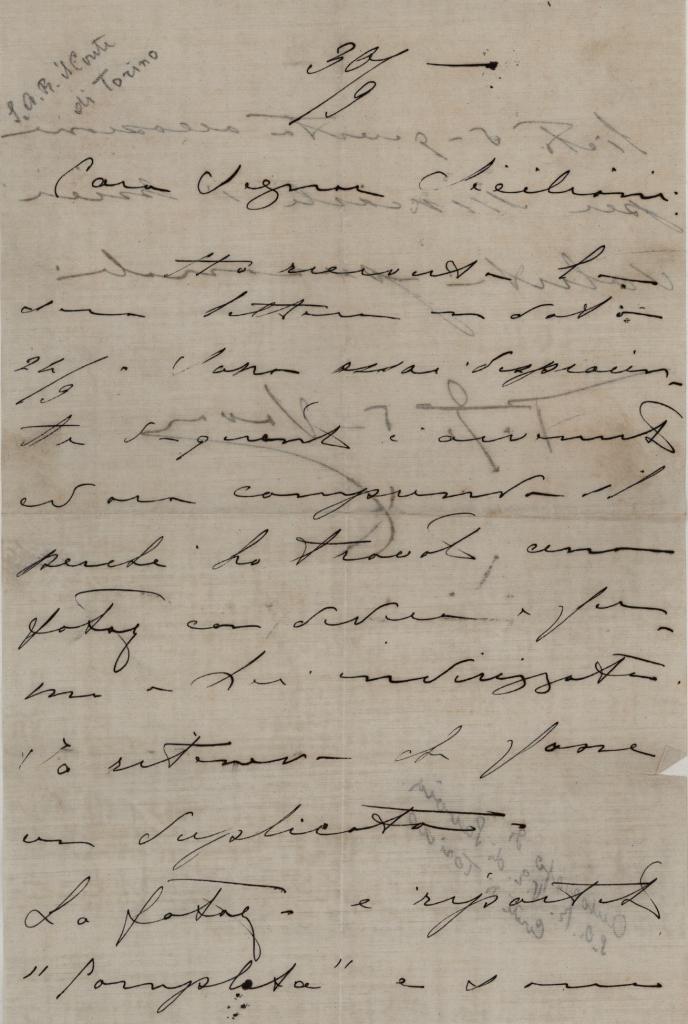 S.A.R. il Conte
di Torino
30/9
Caro Signor Siciliani:
Ho ricevuto la
sua lettera in data
24/9. Sono assai dispiacen-
te di quanto è avvenuto
ed ora comprendo il
perchè ho trovato una
fotog con dedica e fir-
ma a Lei indirizzata.
Io ritenevo che fosse
un duplicato.
La fotog. è riportata
"Completa" e sono